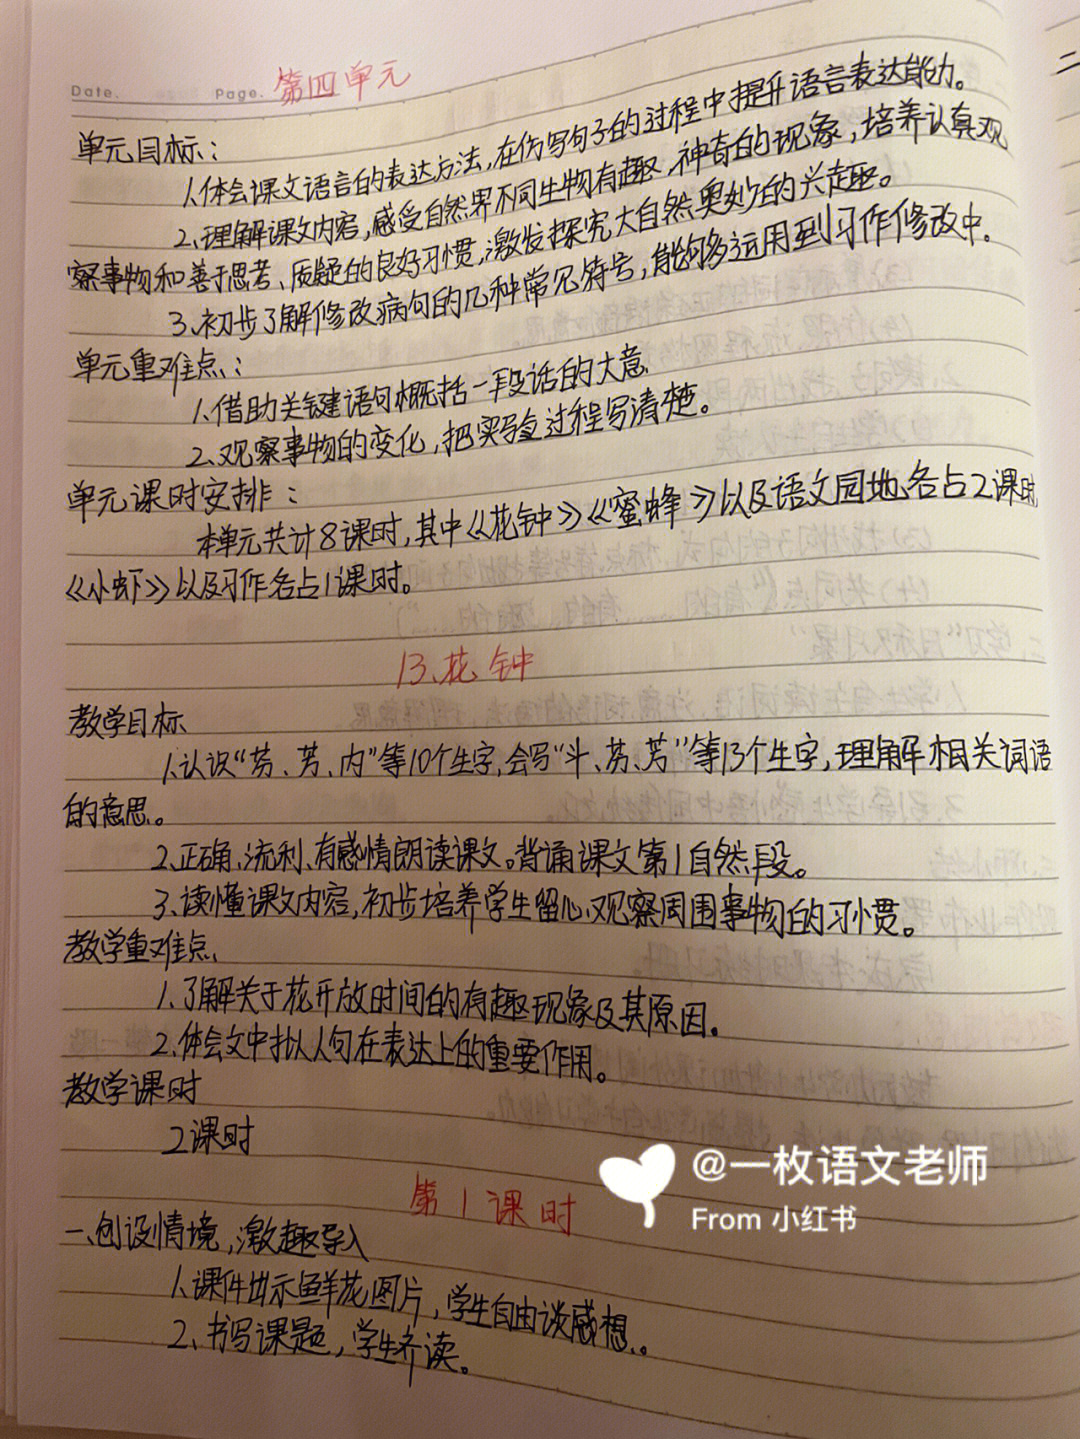 Date. Page. 第四单元
单元目标：
1.体会课文语言的表达方法，在仿写句子的过程中提升语言表达能力。
2.理解课文内容，感受自然界不同生物有趣、神奇的现象，培养认真观
察事物和善于思考、质疑的良好习惯，激发探究大自然奥妙的兴趣。
3.初步了解修改病句的几种常见符号，能够多运用到习作修改中。
单元重难点：
1.借助关键语句概括一段话的大意
2.观察事物的变化，把实验过程写清楚。
单元课时安排：
本单元共计8课时，其中《花钟》《蜜蜂》以及语文园地各占2课时
《小虾》以及习作各占1课时。
13.花钟
教学目标
1.认识“芬、芳、内”等10个生字，会写“斗、芬、芳”等13个生字，理解相关词语
的意思。
2.正确、流利、有感情朗读课文。背诵课文第1自然段。
3.读懂课文内容，初步培养学生留心观察周围事物的习惯。
教学重难点、
1.了解关于花开放时间的有趣现象及其原因。
2.体会文中拟人句在表达上的重要作用。
教学课时
2课时
第1课时
一、创设情境，激趣导入
1.课件出示鲜花图片，学生自由谈感想。
2、书写课题，学生齐读。
@一枚语文老师
From 小红书